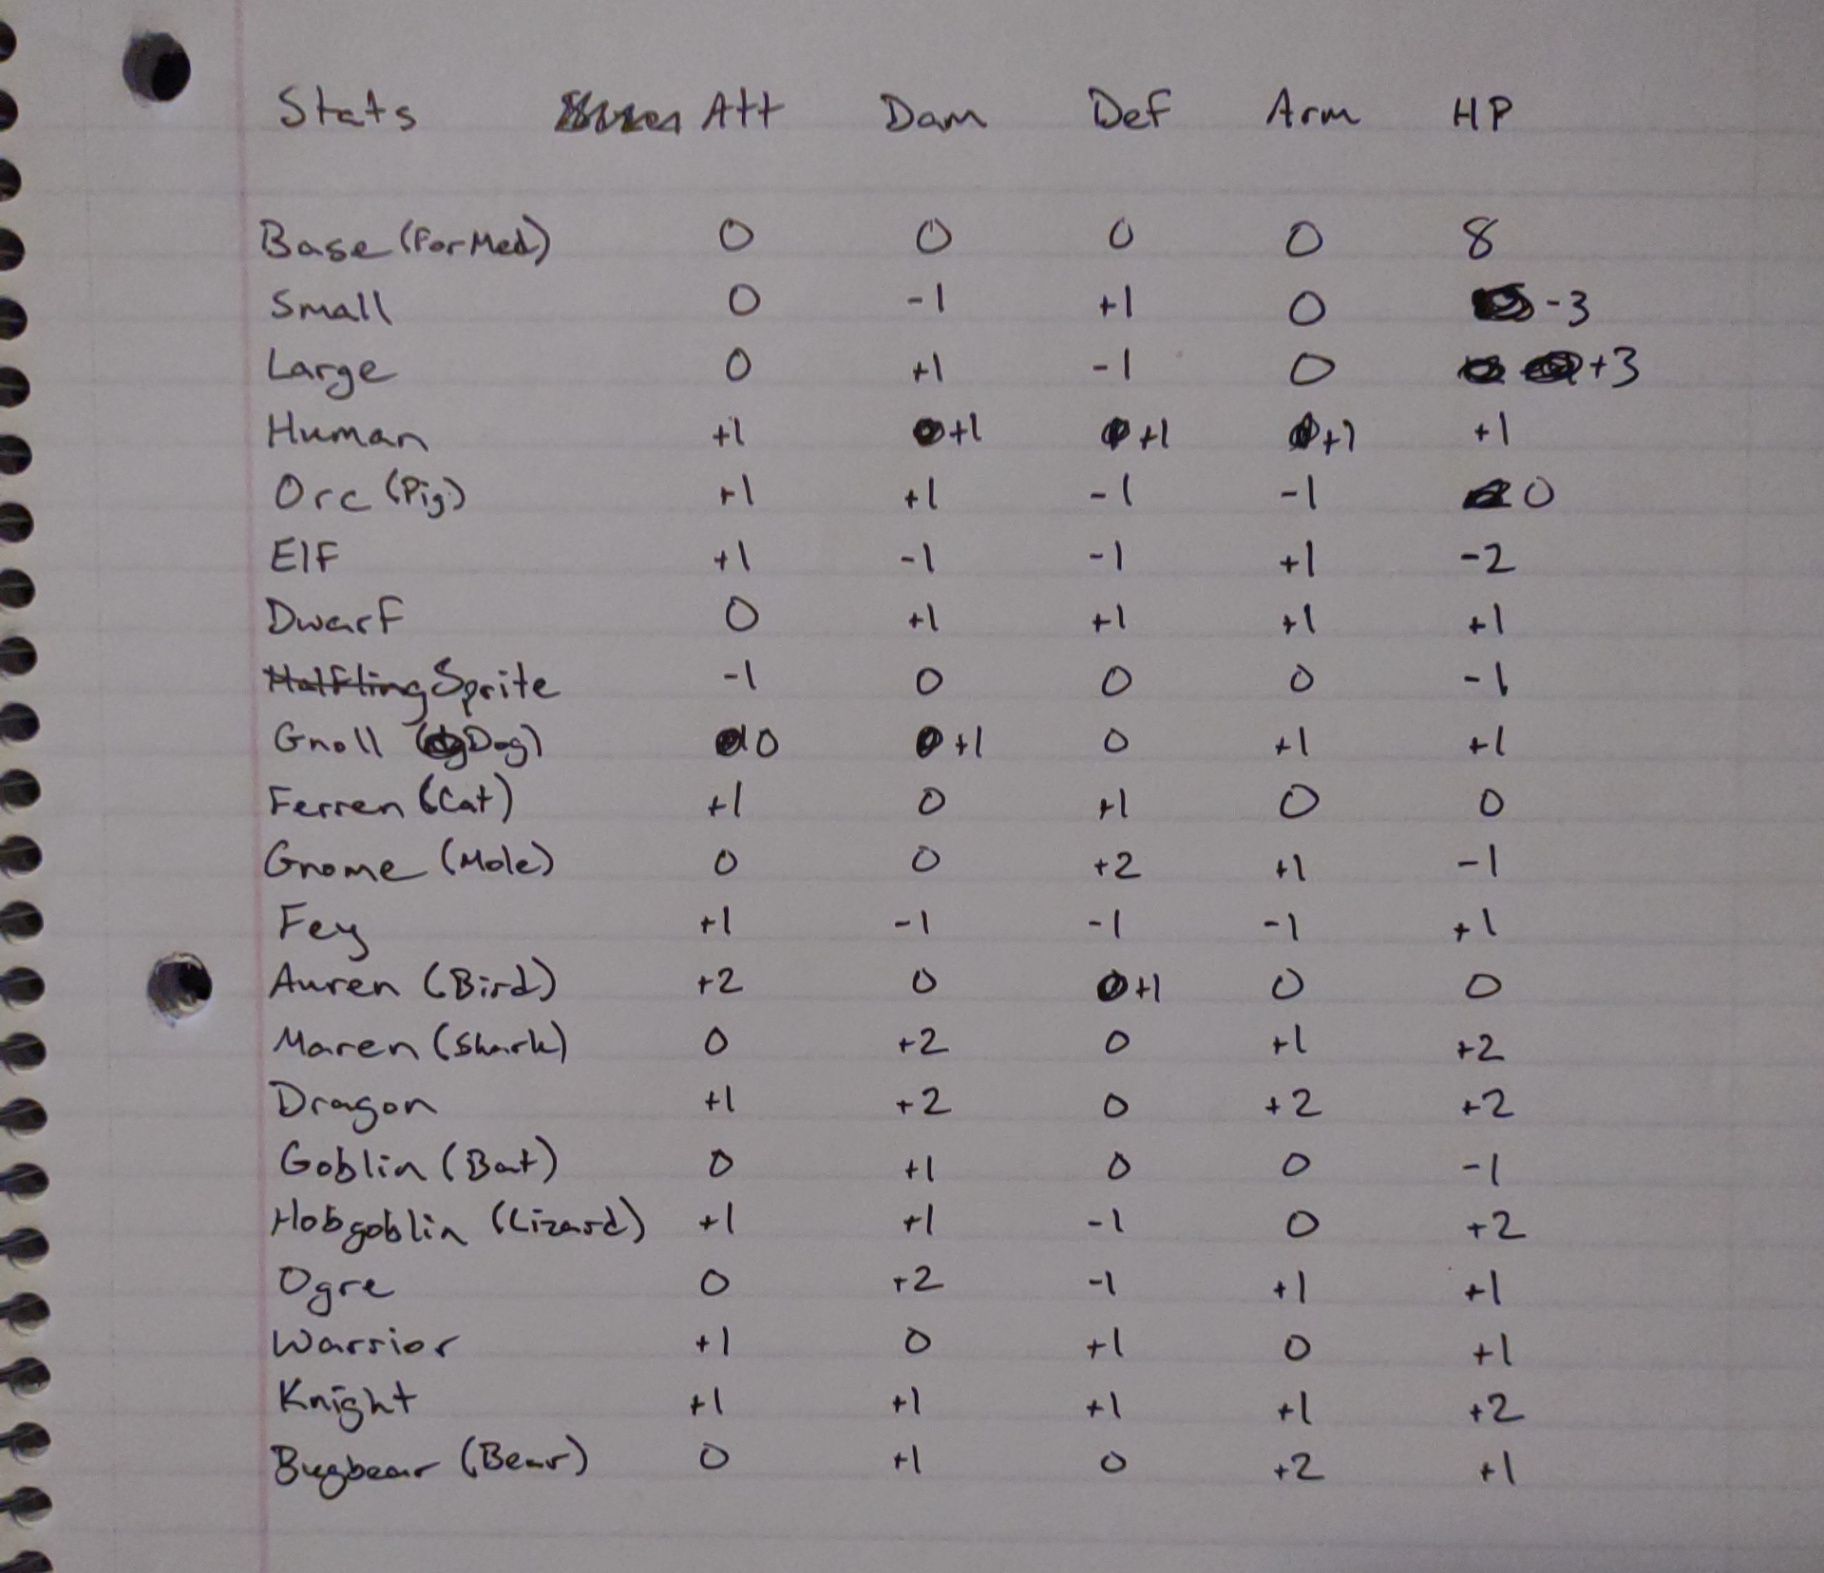 Stats Att Dam Def Arm HP
Base (for Med) 0 0 0 0 8
Small 0 -1 +1 0 -3
Large 0 +1 -1 0 +3
Human +1 +1 +1 +1 +1
Orc (Pig) +1 +1 -1 -1 0
Elf +1 -1 -1 +1 -2
Dwarf 0 +1 +1 +1 +1
Halfling Sprite -1 0 0 0 -1
Gnoll (Dog) 0 +1 0 +1 +1
Ferren (Cat) +1 0 +1 0 0
Gnome (Mole) 0 0 +2 +1 -1
Fey +1 -1 -1 -1 +1
Auren (Bird) +2 0 +1 0 0
Maren (Shark) 0 +2 0 +1 +2
Dragon +1 +2 0 +2 +2
Goblin (Bat) 0 +1 0 0 -1
Hobgoblin (Lizard) +1 +1 -1 0 +2
Ogre 0 +2 -1 +1 +1
Warrior +1 0 +1 0 +1
Knight +1 +1 +1 +1 +2
Bugbear (Bear) 0 +1 0 +2 +1